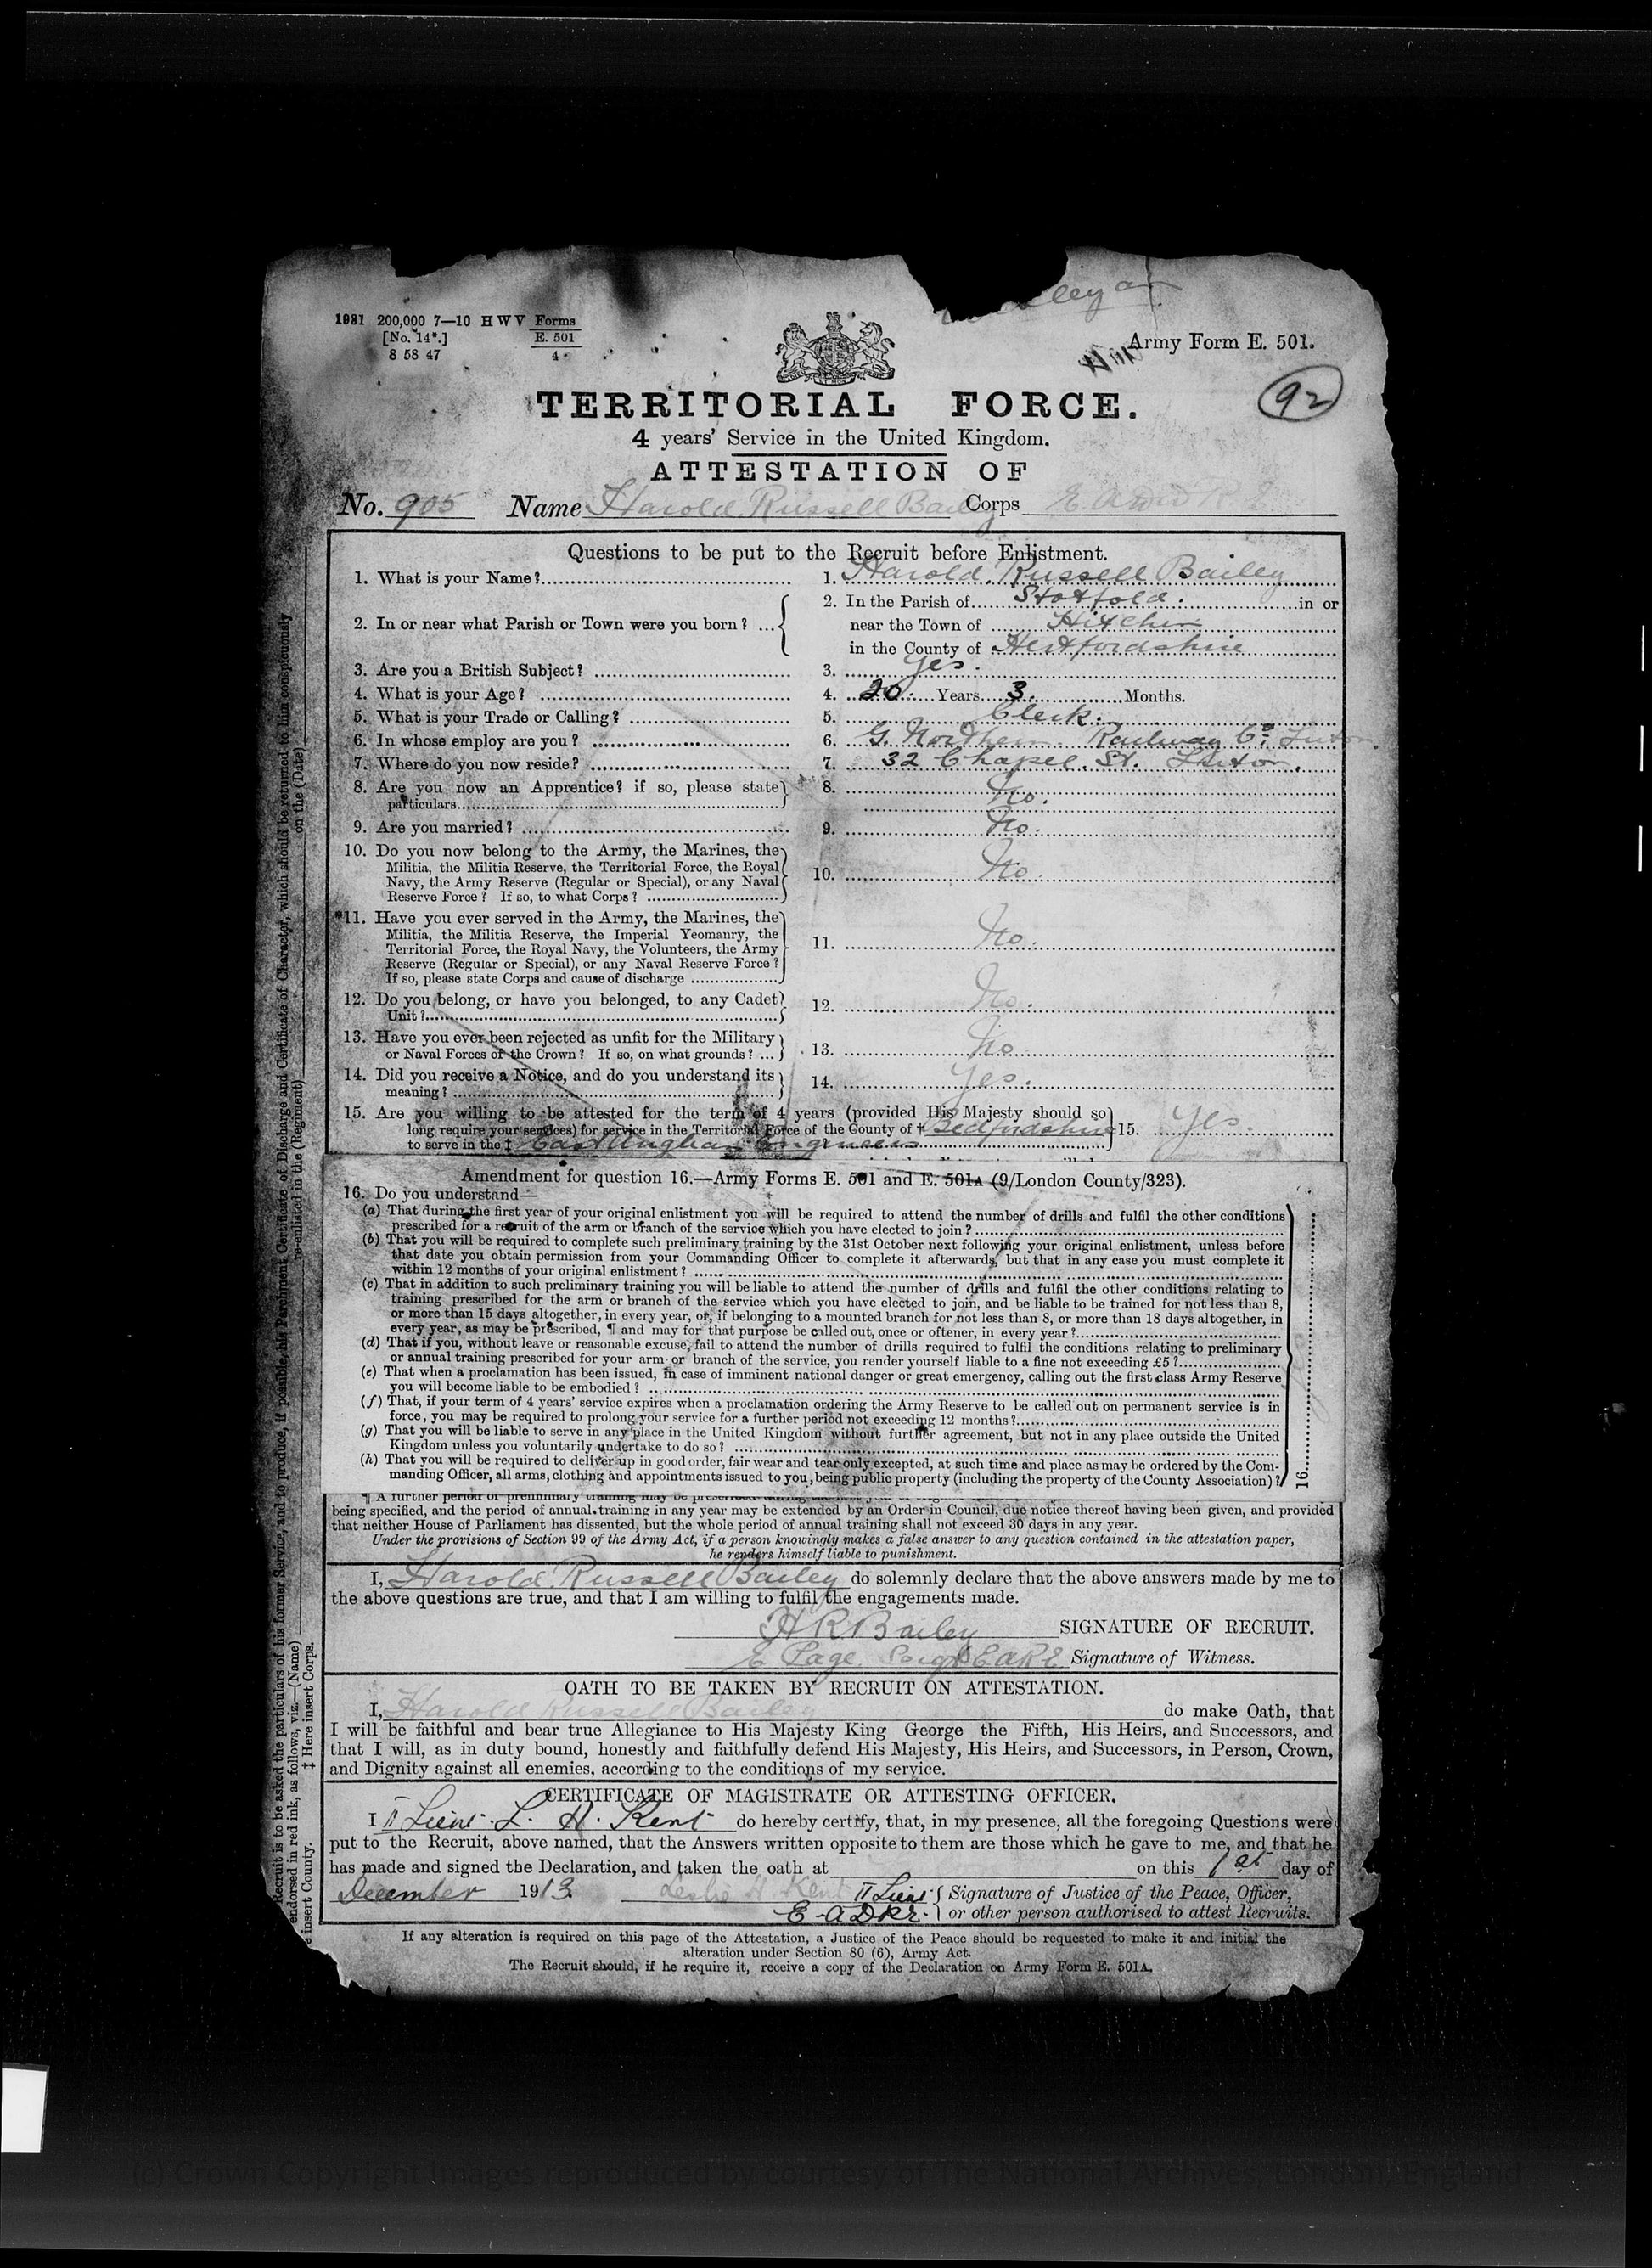 1981 200,000 7—10 H W V Forms
[No. 14*.] E. 501
8 58 47 4
Army Form E. 501.
92
TERRITORIAL FORCE.
4 years' Service in the United Kingdom.
ATTESTATION OF
No. 905 Name Harold Russell Bailey Corps
Questions to be put to the Recruit before Enlistment.
1. What is your Name? 1. Harold Russell Bailey
2. In or near what Parish or Town were you born? 2. In the Parish of Stotfold. in or
near the Town of Hitchin
in the County of Hertfordshire
3. Are you a British Subject? 3. Yes.
4. What is your Age? 4. 20 Years 3 Months.
5. What is your Trade or Calling? 5. Clerk.
6. In whose employ are you? 6. G. Northern Railway Co. Luton.
7. Where do you now reside? 7. 32 Chapel. St. Luton.
8. Are you now an Apprentice? if so, please state 8. No.
particulars
9. Are you married? 9. No.
10. Do you now belong to the Army, the Marines, the
Militia, the Militia Reserve, the Territorial Force, the Royal
Navy, the Army Reserve (Regular or Special), or any Naval 10. No.
Reserve Force? If so, to what Corps?
*11. Have you ever served in the Army, the Marines, the
Militia, the Militia Reserve, the Imperial Yeomanry, the
Territorial Force, the Royal Navy, the Volunteers, the Army 11. No.
Reserve (Regular or Special), or any Naval Reserve Force?
If so, please state Corps and cause of discharge
12. Do you belong, or have you belonged, to any Cadet 12. No.
Unit?
13. Have you ever been rejected as unfit for the Military 13. No
or Naval Forces of the Crown? If so, on what grounds?
14. Did you receive a Notice, and do you understand its 14. Yes.
meaning?
15. Are you willing to be attested for the term of 4 years (provided His Majesty should so
long require your services) for service in the Territorial Force of the County of † Bedfordshire 15. Yes.
to serve in the ‡ East Anglian Engineers
Amendment for question 16.—Army Forms E. 501 and E. 501A (9/London County/323).
16. Do you understand—
(a) That during the first year of your original enlistment you will be required to attend the number of drills and fulfil the other conditions
prescribed for a recruit of the arm or branch of the service which you have elected to join?
(b) That you will be required to complete such preliminary training by the 31st October next following your original enlistment, unless before
that date you obtain permission from your Commanding Officer to complete it afterwards, but that in any case you must complete it
within 12 months of your original enlistment?
(c) That in addition to such preliminary training you will be liable to attend the number of drills and fulfil the other conditions relating to
training prescribed for the arm or branch of the service which you have elected to join, and be liable to be trained for not less than 8,
or more than 15 days altogether, in every year, or, if belonging to a mounted branch for not less than 8, or more than 18 days altogether, in
every year, as may be prescribed, ¶ and may for that purpose be called out, once or oftener, in every year?
(d) That if you, without leave or reasonable excuse, fail to attend the number of drills required to fulfil the conditions relating to preliminary
or annual training prescribed for your arm or branch of the service, you render yourself liable to a fine not exceeding £5?
(e) That when a proclamation has been issued, in case of imminent national danger or great emergency, calling out the first class Army Reserve
you will become liable to be embodied?
(f) That, if your term of 4 years' service expires when a proclamation ordering the Army Reserve to be called out on permanent service is in
force, you may be required to prolong your service for a further period not exceeding 12 months?
(g) That you will be liable to serve in any place in the United Kingdom without further agreement, but not in any place outside the United
Kingdom unless you voluntarily undertake to do so?
(h) That you will be required to deliver up in good order, fair wear and tear only excepted, at such time and place as may be ordered by the Com-
manding Officer, all arms, clothing and appointments issued to you, being public property (including the property of the County Association)?
16.
¶ A further period of preliminary training may be
being specified, and the period of annual training in any year may be extended by an Order in Council, due notice thereof having been given, and provided
that neither House of Parliament has dissented, but the whole period of annual training shall not exceed 30 days in any year.
Under the provisions of Section 99 of the Army Act, if a person knowingly makes a false answer to any question contained in the attestation paper,
he renders himself liable to punishment.
I, Harold Russell Bailey do solemnly declare that the above answers made by me to
the above questions are true, and that I am willing to fulfil the engagements made.
H R Bailey SIGNATURE OF RECRUIT.
E Page Signature of Witness.
OATH TO BE TAKEN BY RECRUIT ON ATTESTATION.
I, Harold Russell Bailey do make Oath, that
I will be faithful and bear true Allegiance to His Majesty King George the Fifth, His Heirs, and Successors, and
that I will, as in duty bound, honestly and faithfully defend His Majesty, His Heirs, and Successors, in Person, Crown,
and Dignity against all enemies, according to the conditions of my service.
CERTIFICATE OF MAGISTRATE OR ATTESTING OFFICER.
I II Lieut. L. H. Kent do hereby certify, that, in my presence, all the foregoing Questions were
put to the Recruit, above named, that the Answers written opposite to them are those which he gave to me, and that he
has made and signed the Declaration, and taken the oath at on this 1st day of
December 1913 Leslie H Kent II Lieut Signature of Justice of the Peace, Officer,
E-A D R.E. or other person authorised to attest Recruits.
If any alteration is required on this page of the Attestation, a Justice of the Peace should be requested to make it and initial the
alteration under Section 80 (6), Army Act.
The Recruit should, if he require it, receive a copy of the Declaration on Army Form E. 501A.
Recruit is to be asked the particulars of his former Service, and to produce, if possible, his Parchment Certificate of Discharge and Certificate of Character, which should be returned to him conspicuously
endorsed in red ink, as follows, viz.—(Name) re-enlisted in the (Regiment) on the (Date)
insert County. ‡ Here insert Corps.
(c) Crown Copyright Images reproduced by courtesy of The National Archives, London, England